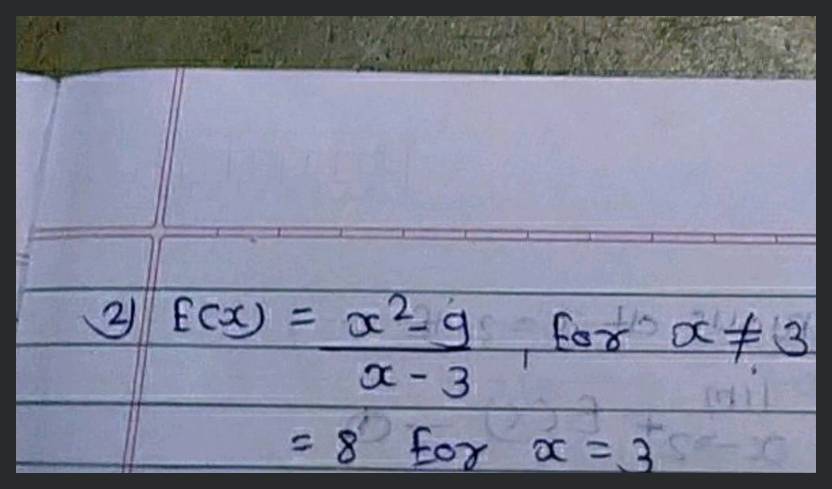 2) f(x) = x²-9 / x-3 , for x ≠ 3
= 8 for x = 3